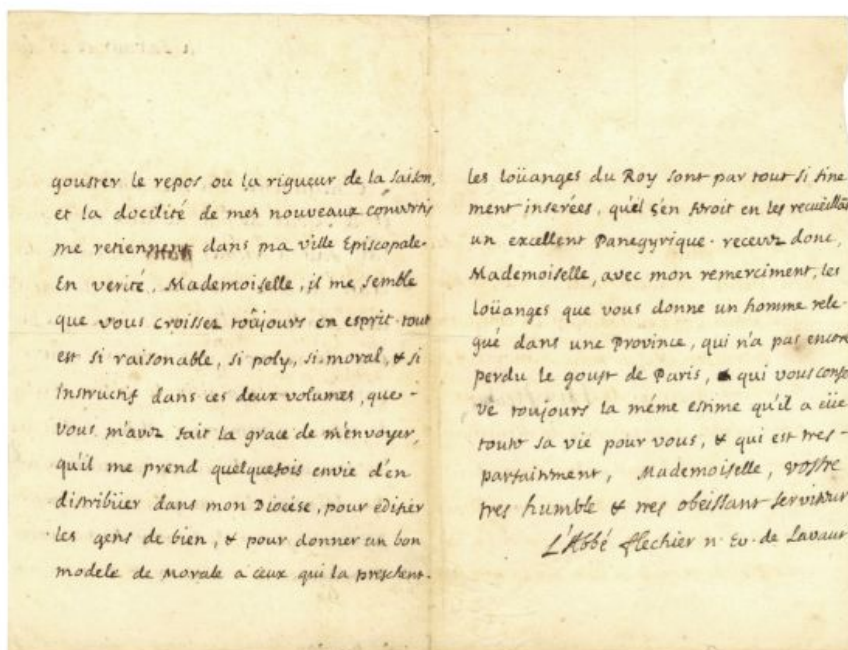 gouster le repos ou la rigueur de la saison,
et la docilité de mes nouveaux convertis
me retiennent dans ma ville Episcopale.
En verité, Mademoiselle, il me semble
que vous croissez toûjours en esprit. tout
est si raisonable, si poly, si moral, & si
instructif dans ces deux volumes, que
vous m'avez fait la grace de m'envoyer,
qu'il me prend quelquefois envie d'en
distribüer dans mon Diocése, pour edifier
les gens de bien, & pour donner un bon
modele de Morale a ceux qui la preschent.
les loüanges du Roy sont par tout si fine
ment inserées, qu'il s'en feroit en les recueillãt
un excellent Panegyrique. recevez donc,
Mademoiselle, avec mon remerciment, les
loüanges que vous donne un homme rele-
gué dans une Province, qui n'a pas encore
perdu le goust de Paris, qui vous conser
ve toujours la méme estime qu'il a eüe
toute sa vie pour vous, & qui est tres-
parfaitement, Mademoiselle, vostre
tres humble & tres obeissant serviteur
L'Abbé flechier n. Ev. de Lavaur